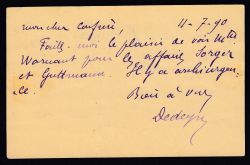 11-7-90
mon cher confrère,
Faites-moi le plaisir de voir Mtre
Warnant pour les affaires Sorger
et Guttmann. Il y a archiurgen-
ce.
Bien à vous
Dedeyn